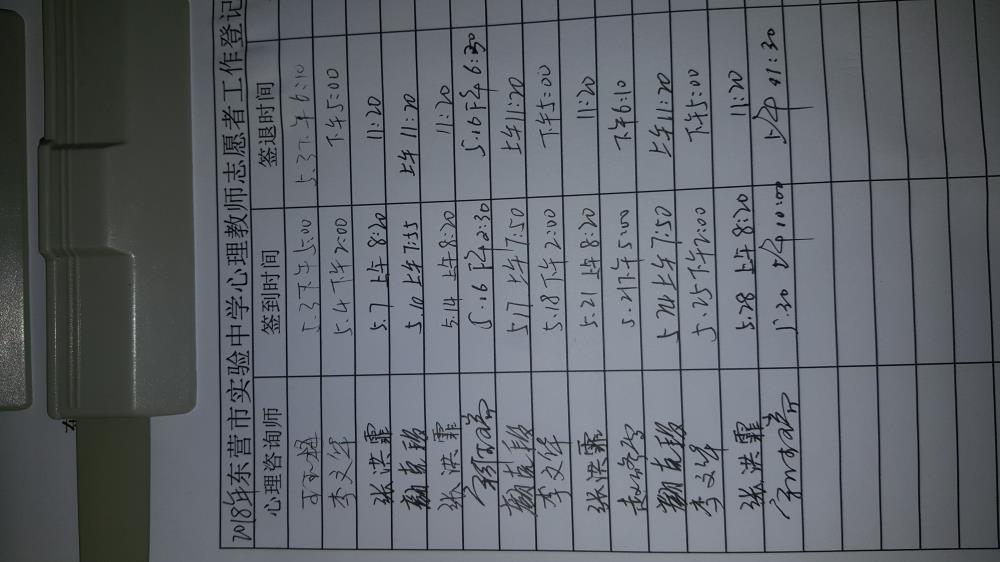 2018年东营市实验中学心理教师志愿者工作登记
心理咨询师 签到时间 签退时间
5.3下午5:00 5.3下午6:10
李文华 5.4下午2:00 下午5:00
张洪霏 5.7 上午8:20 11:20
5.10 上午7:55 上午11:20
张洪霏 5.14 上午8:20 11:20
5.16 下午2:30 5.16下午6:30
5.17 上午7:50 上午11:20
李文华 5.18下午2:00 下午5:00
张洪霏 5.21 上午8:20 11:20
5.21下午5:00 下午6:10
5.24上午7:50 上午11:20
李文华 5.25下午2:00 下午5:00
张洪霏 5.28 上午8:20 11:20
5.30 上午10:00 上午11:30